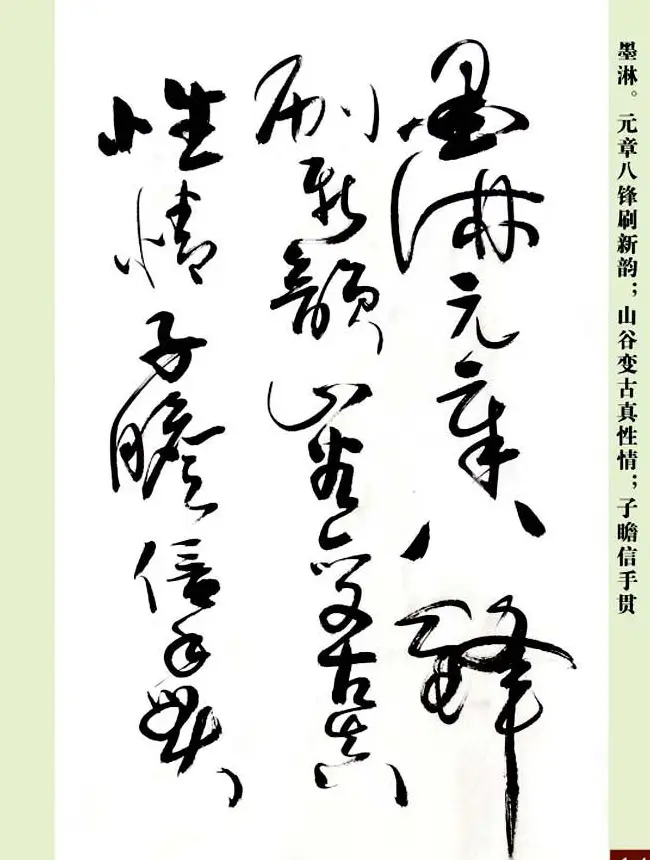 墨淋元章八锋
刷新韵山谷变古真
性情子瞻信手贯
墨淋。元章八锋刷新韵；山谷变古真性情；子瞻信手贯